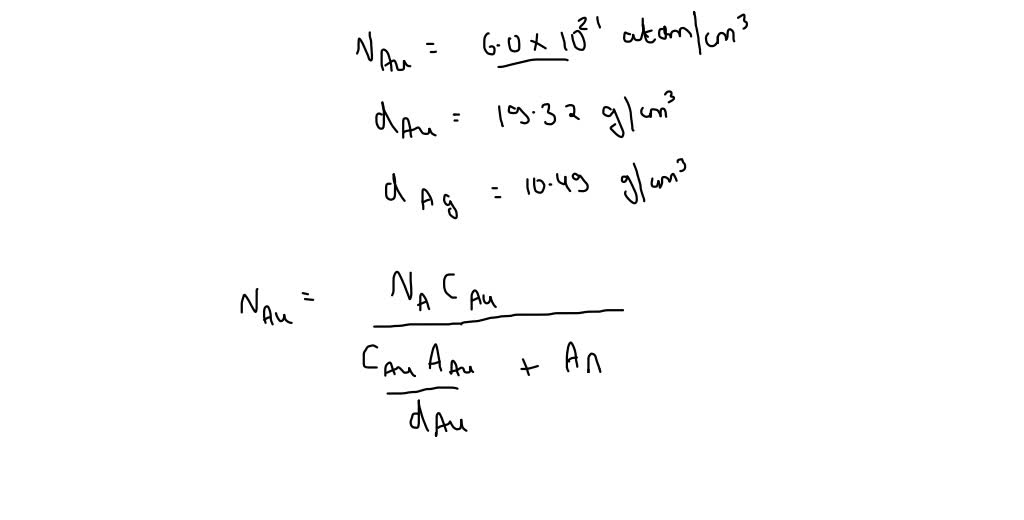 N_Au = 6.0 x 10^21 atom/cm^3
d_Au = 19.32 g/cm^3
d_Ag = 10.49 g/cm^3
N_Au = N_A C_Au
C_Au A_Au + An
d_Au